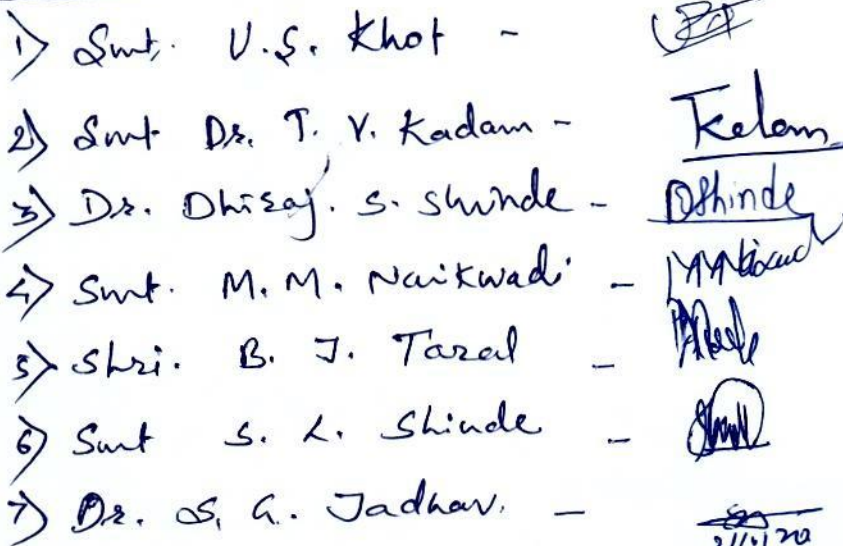 1) Smt. V.S. Khot -
2) Smt Dr. T. V. Kadam - Tkadam
3) Dr. Dhiraj. S. Shinde - DShinde
4) Smt. M. M. Naikwadi -
5) Shri. B. J. Taral -
6) Smt S. L. Shinde -
7) Dr. S. G. Jadhav. -